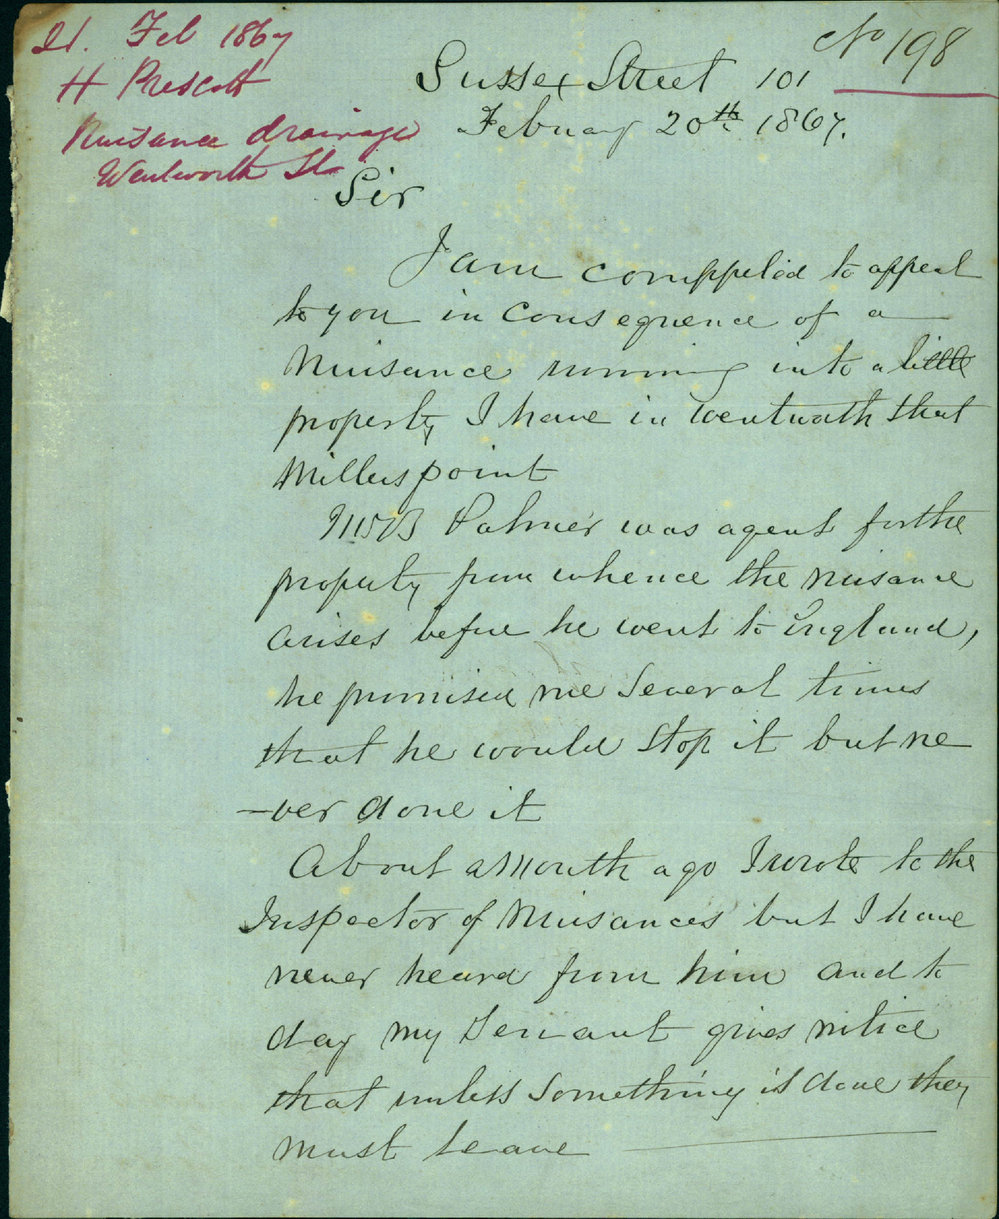 21. Feb 1867
H Prescott
Nuisance drainage
Wentworth St
No 198
Sussex Street 101
Febuary 20th 1867.
Sir
I am comppeled to appeal
to you in consequence of a
Nuisance running into a little
property I have in wentwoth that
Millers point
Palmer was agent for the
property from whence the nusance
arises before he went to England,
he promised me several times
that he would stop it but ne
-ver done it
About a Month ago I wrote to the
Inspector of Nuisances but I have
never heard from him and to
day my Servant gives notice
that unless something is done they
must leave